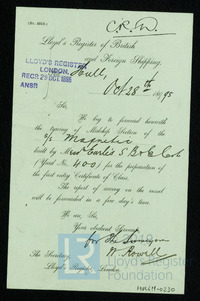 C.R.W.
Lloyd's Register of British
and Foreign Shipping.
LLOYD'S REGISTER
LONDON.
RECR 29 OCT 1895
ANSR
Hull,
Oct 28th 1895
Sir,
We beg to forward herewith
the tracing of the Midship Section of the
s/s Magnetic
built by Messrs Earle's S & E Co Ld
(Yard No. 400) for the preparation of
the first entry Certificate of Class.
The report of survey on this vessel
will be forwarded in a few days' time.
We are, Sir,
Your obedient Servants,
for The Surveyors
The Secretary,
Lloyd's Register, London.
Lloyd's Register
Foundation